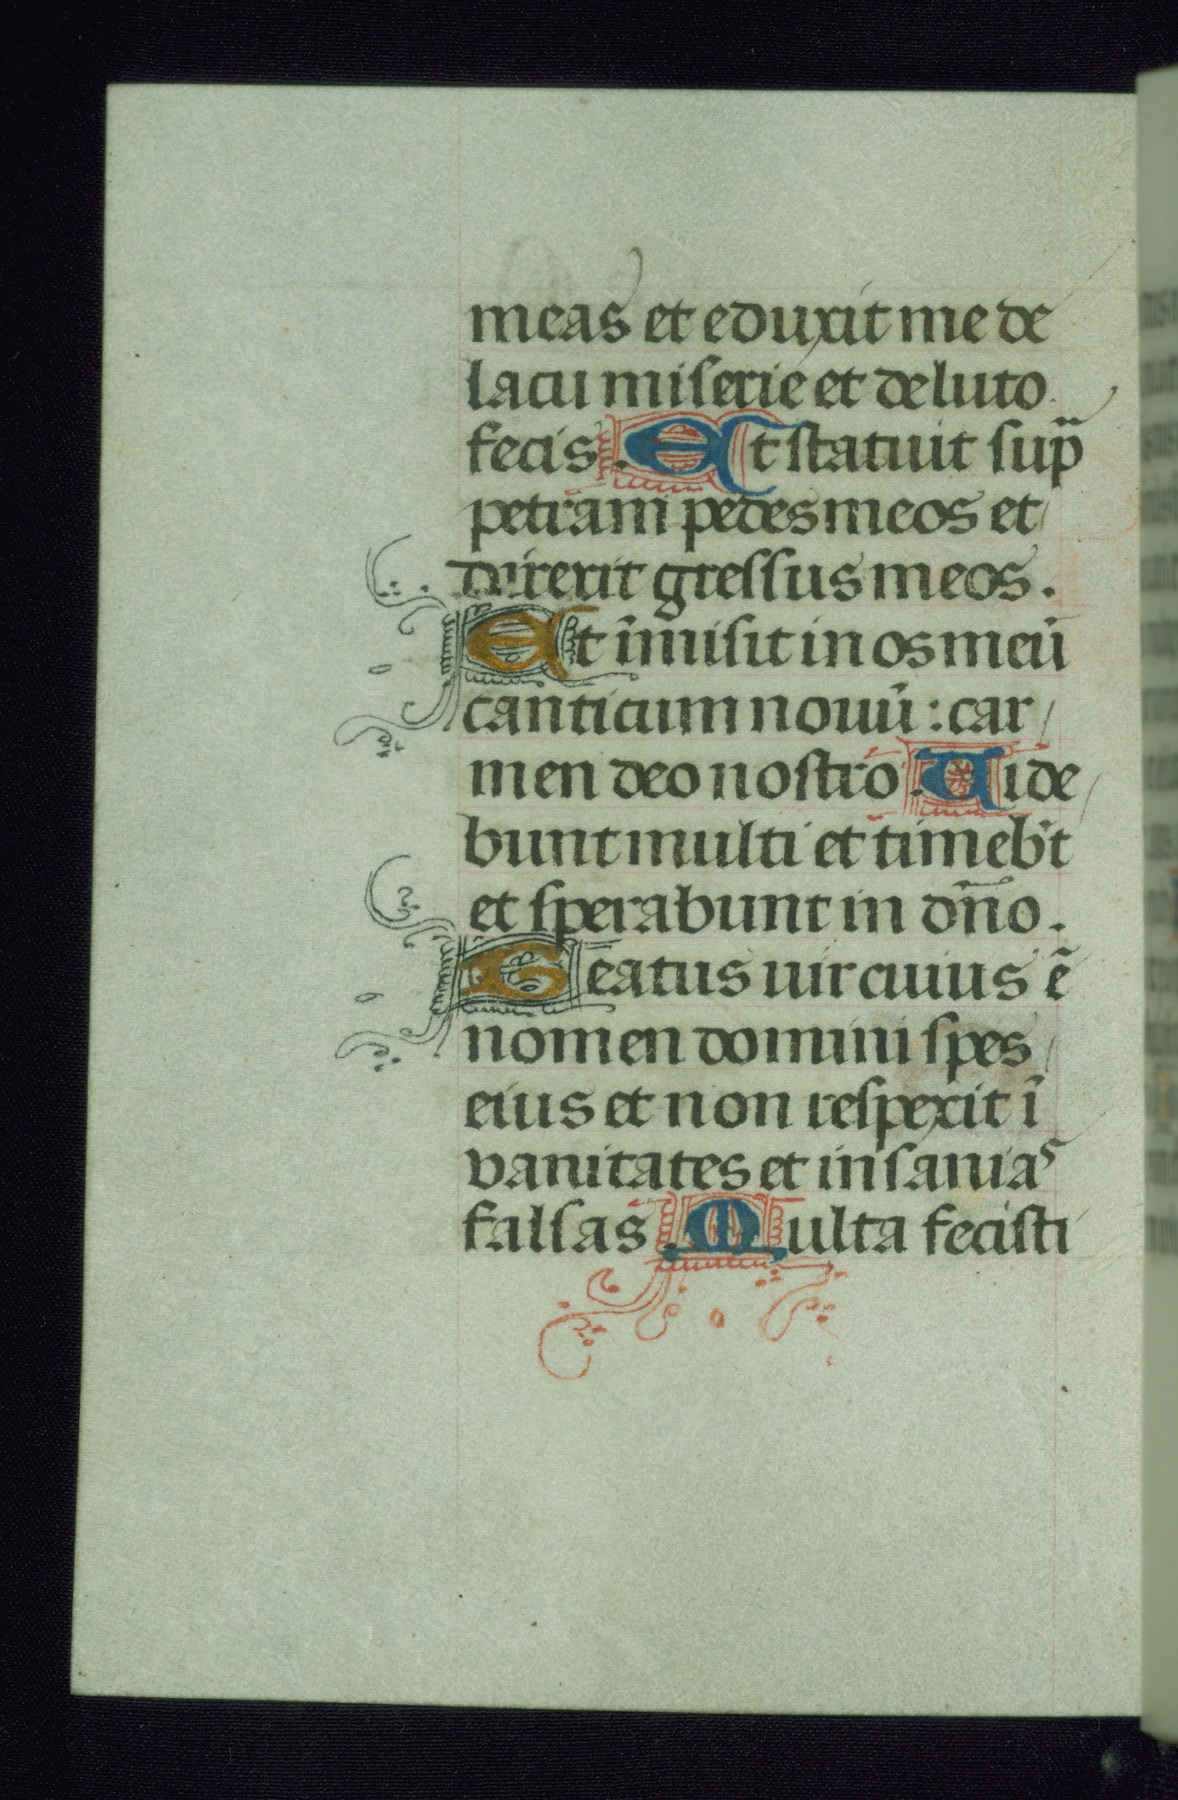 meas et eduxit me de
lacu miserie et de luto
fecis. Et statuit sup̃
petram pedes meos et
direxit gressus meos.
Et ĩmisit in os meũ
canticum nouũ : car
men deo nostro. Uide
bunt multi et timeb̃t
et sperabunt in dñо.
Beatus uir cuius ẽ
nomen domini spes
eius et non respexit ĩ
vanitates et insanias
falsas. Multa fecisti